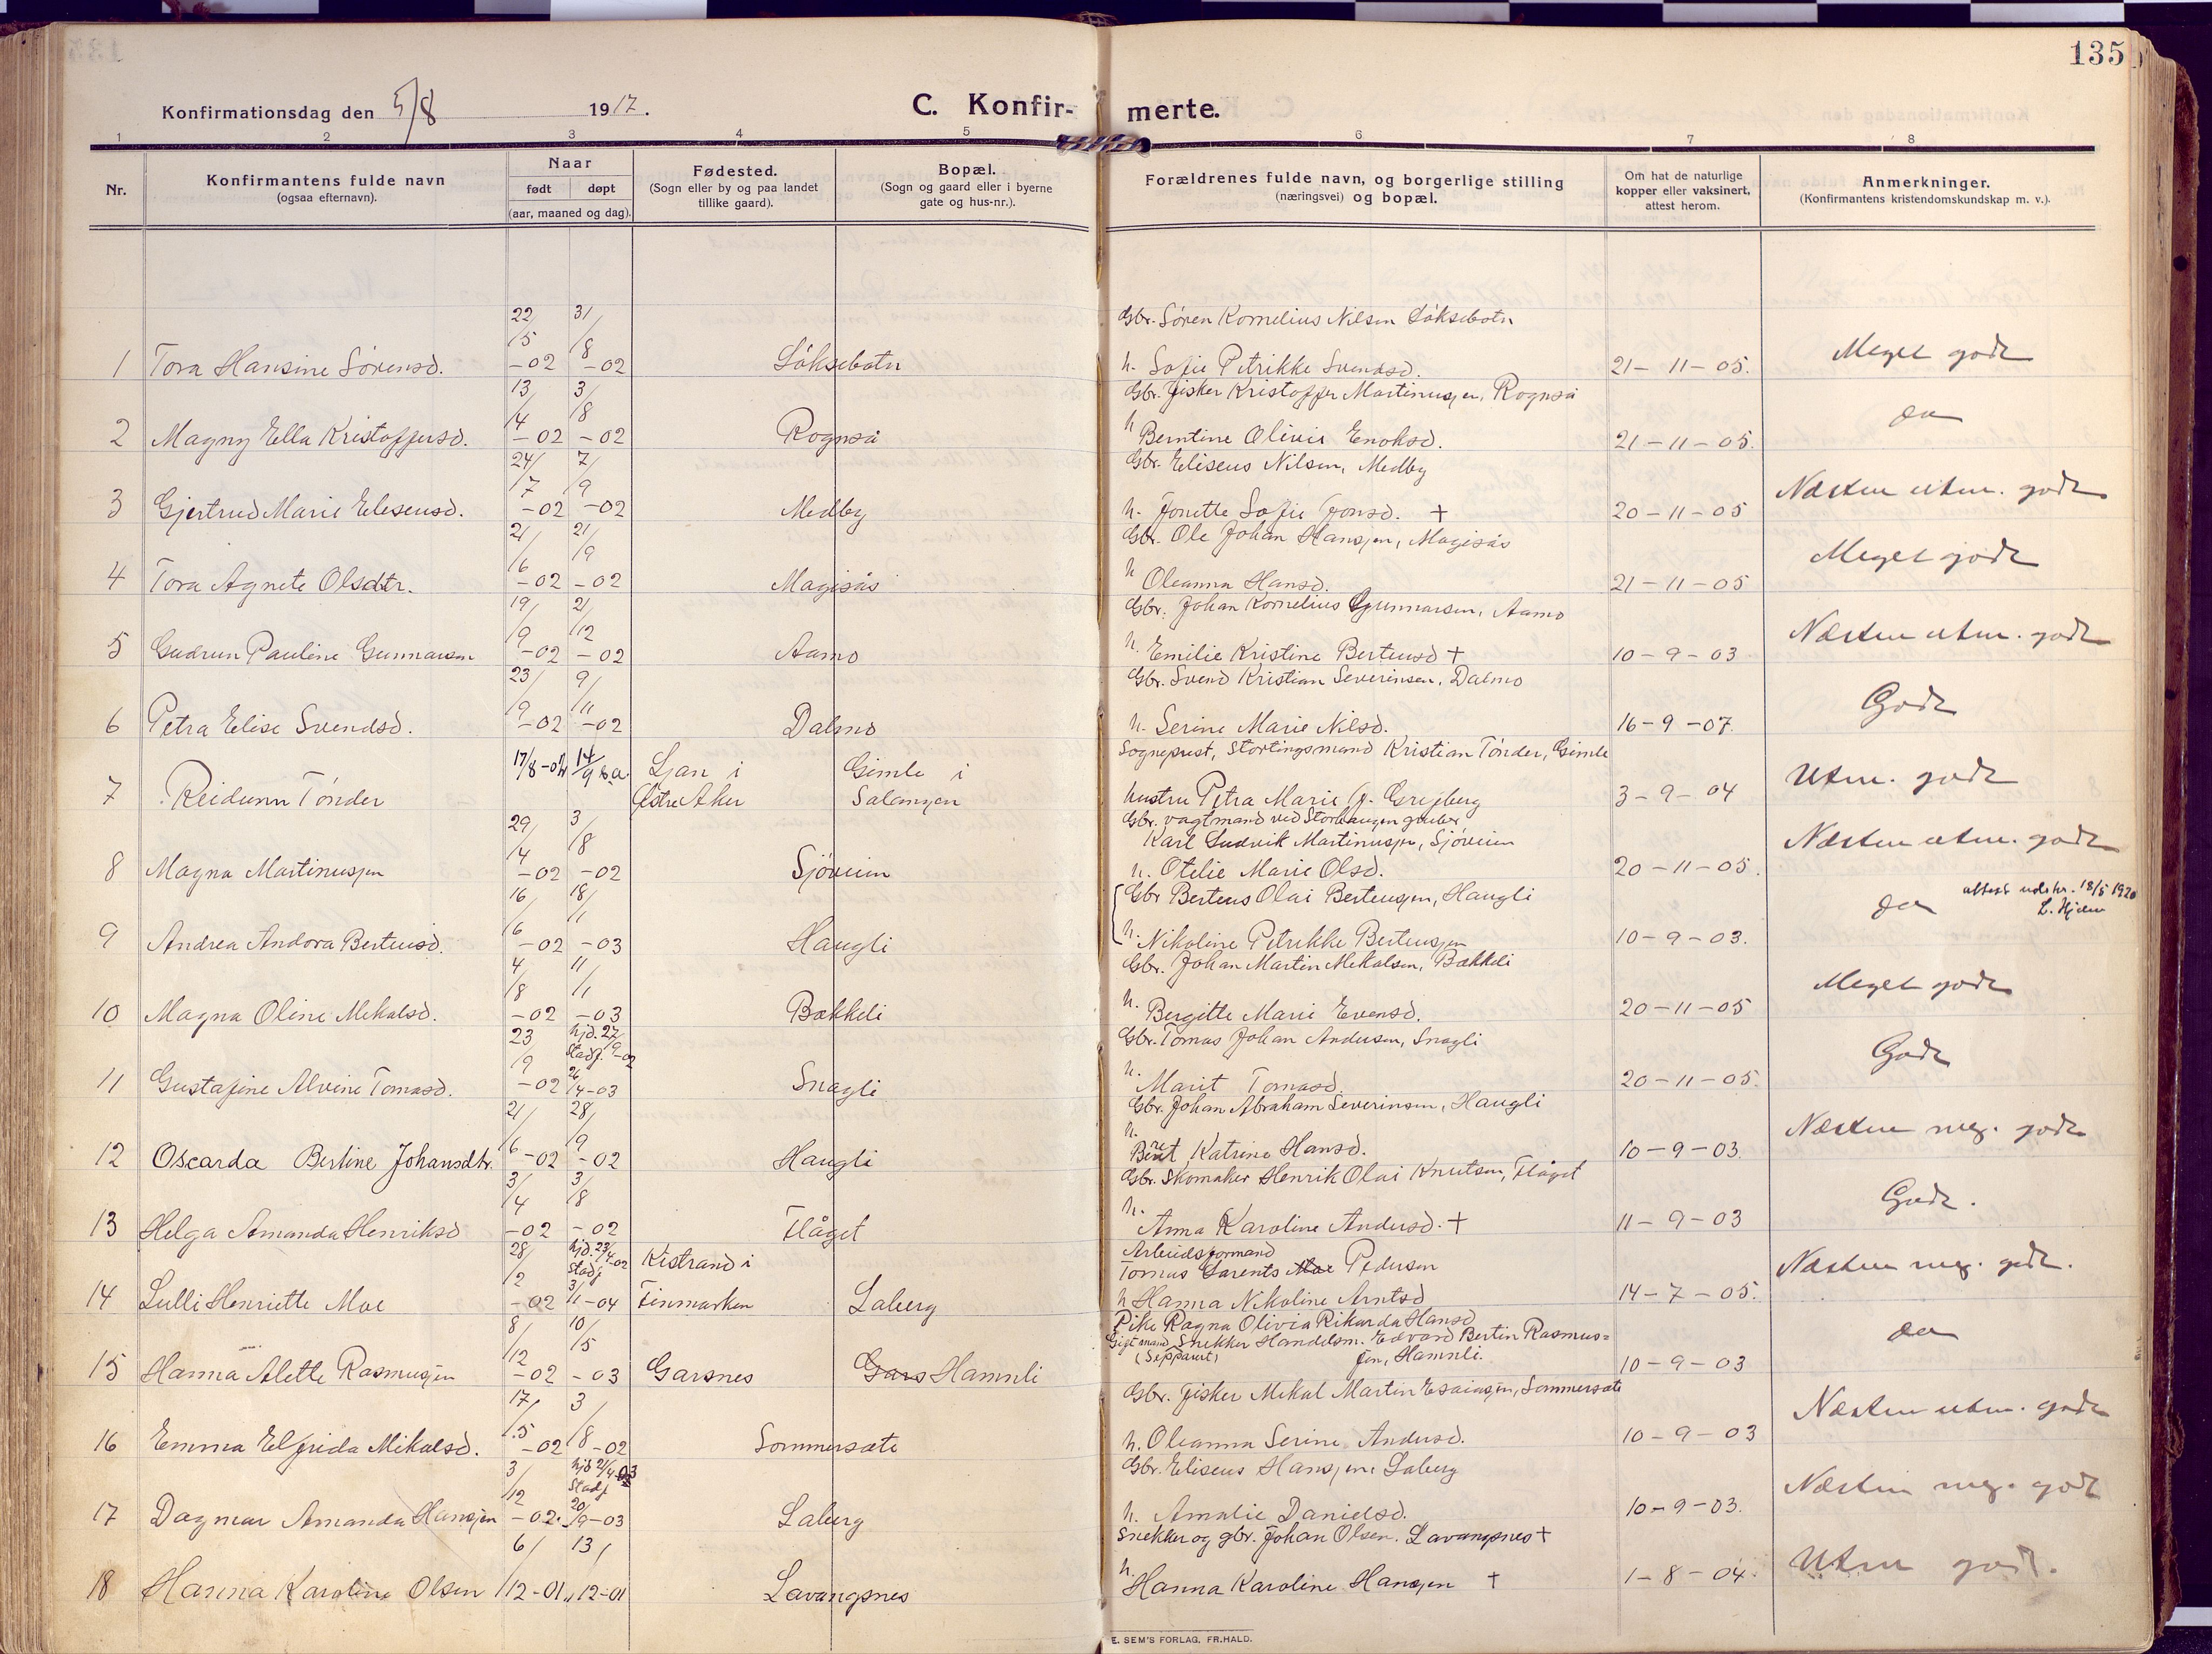 135
Konfirmationsdag den 5/8 1917.
C. Konfirmerte.
1 2 3 4 5 6 7 8
Nr.
Konfirmantens fulde navn
(ogsaa efternavn).
Naar
født døpt
(aar, maaned og dag).
Fødested.
(Sogn eller by og paa landet
tillike gaard).
Bopæl.
(Sogn og gaard eller i byerne
gate og hus-nr.).
Forældrenes fulde navn, og borgerlige stilling
(næringsvei) og bopæl.
Om hat de naturlige
kopper eller vaksinert,
attest herom.
Anmerkninger.
(Konfirmantens kristendomskundskap m. v.).
1 Tora Hansine Sörensd. 22/5 -02 31/8 -02 Löksebotn
Gbr. Sören Kornelius Nilsen Löksebotn
h. Sofie Petrikke Svendsd. 21-11-05. Meget godt
2 Magny Ella Kristoffersd. 13/4 -02 3/8 -02 Rognså
Gbr. fisker Kristoffer Martinusen, Rognså
h Berntine Olivie Enoksd. 21-11-05. do
3 Gjertrud Marie Elesensd. 24/7 -02 7/9 -02 Medby
Gbr. Eliseus Nilsen, Medby
h. Jonette Sofie Jonsd. † 20-11-05 Næsten utm. godt
4 Tora Agnete Olsdtr. 21/6 -02 21/9 -02 Magisås
Gbr. Ole Johan Hansen, Magisås
h Oleanna Hansd. 21-11-05 Meget godt
5 Gudrun Pauline Gunnarsen 19/9 -02 21/12 -02 Aamo
Gbr. Johan Kornelius Gunnarsen, Aamo
h. Emilie Kristine Bertensd † 10-9-03 Næsten utm. godt
6 Petra Elise Svendsd. 23/9 -02 9/11 -02 Dalmo
Gbr. Svend Kristian Severinsen, Dalmo
h. Serine Marie Nilsd. 16-9-07. Godt
7 Reidunn Tönder 17/8-02 14/9 s.a. Ljan i Östre Aker Gimle i Salangen
Sogneprest, Stortingsmand Kristian Tönder, Gimle
hustru Petra Marie f. Greiberg 3-9-04 Utm. godt
8 Magna Martinusen 29/4 -02 3/8 -02 Sjöveien
Gbr. vagtmand ved Storhaugen gruber
Karl Ludvik Martinusen, Sjöveien
h. Otelie Marie Olsd. 20-11-05. Næsten utm. godt
9 Andrea Andora Bertensd. 16/6 -02 18/1 -03 Haugli
Gbr Bertens Olai Bertensen, Haugli
h. Nikoline Petrikke Bertensen 10-9-03. do attest udstr. 18/5 1920
L. Hjelm
10 Magna Oline Mekalsd. 4/8 -02 11/1 -03 Bækkeli
Gbr. Johan Martin Mekalsen, Bækkeli
h. Bergitte Marie Evensd. 20-11-05 Meget godt
11 Gustafine Alvine Tomasd. 23/9 -02 hjd. 27/9 -02 Stadf. 26/4-03 Snøgli
Gbr. Tomas Johan Andersen, Snøgli
h. Marit Tomasd. 20-11-05. Godt
12 Oscarda Bertine Johansdtr. 21/6 -02 28/9 -02 Haugli
Gbr. Johan Abraham Severinsen, Haugli
h. Berret Katrine Hansd. 10-9-03. Næsten meg. godt
13 Helga Amanda Henriksd 3/4 -02 3/8 -02 Flåget
Gbr. Skomaker Henrik Olai Knutsen, Flåget
h. Anna Karoline Andersd. † 11-9-03 Godt.
14 Lulli Henriette Moe 28/2 -02 hjd. 23/4-02 Stadf 3/11-04 Kistrand i Finmarken Laberg
Arbeidsformand
Tomas Larents Moe Pedersen
h Hanna Nikoline Arntsd 14-7-05. Næsten meg. godt.
15 Hanna Alette Rasmusen 8/12 -02 10/5 -03 Garsnes Gars Hamnli
Pike Ragna Olivia Rikarda Hansd
Gigt mand Snekker Handelsm. Edvard Bertin Rasmus=
(Seppauit) sen, Hamnli. 10-9-03 do
16 Emma Elfrida Mikalsd. 17/5 -02 3/8 -02 Sommersæte
Gbr. fisker Mekal Martin Esaiasen, Sommersæte
h. Oleanna Serine Andersd. 10-9-03 Næsten utm. godt
17 Dagmar Amanda Hansen 3/12 -02. hjd 21/4 03 Stadf 20/9-03 Laberg
Gbr. Eliseus Hansen Laberg
h. Amalie Danielsd. 10-9-03. Næsten meg. godt
18 Hanna Karoline Olsen 6/12-01 13/12-01 Lavangsnes
Snekker og gbr. Johan Olsen. Lavangsnes †
h. Hanna Karoline Hansen † 1-8-04. Utm godt.
E. SEM'S FORLAG, FR.HALD.